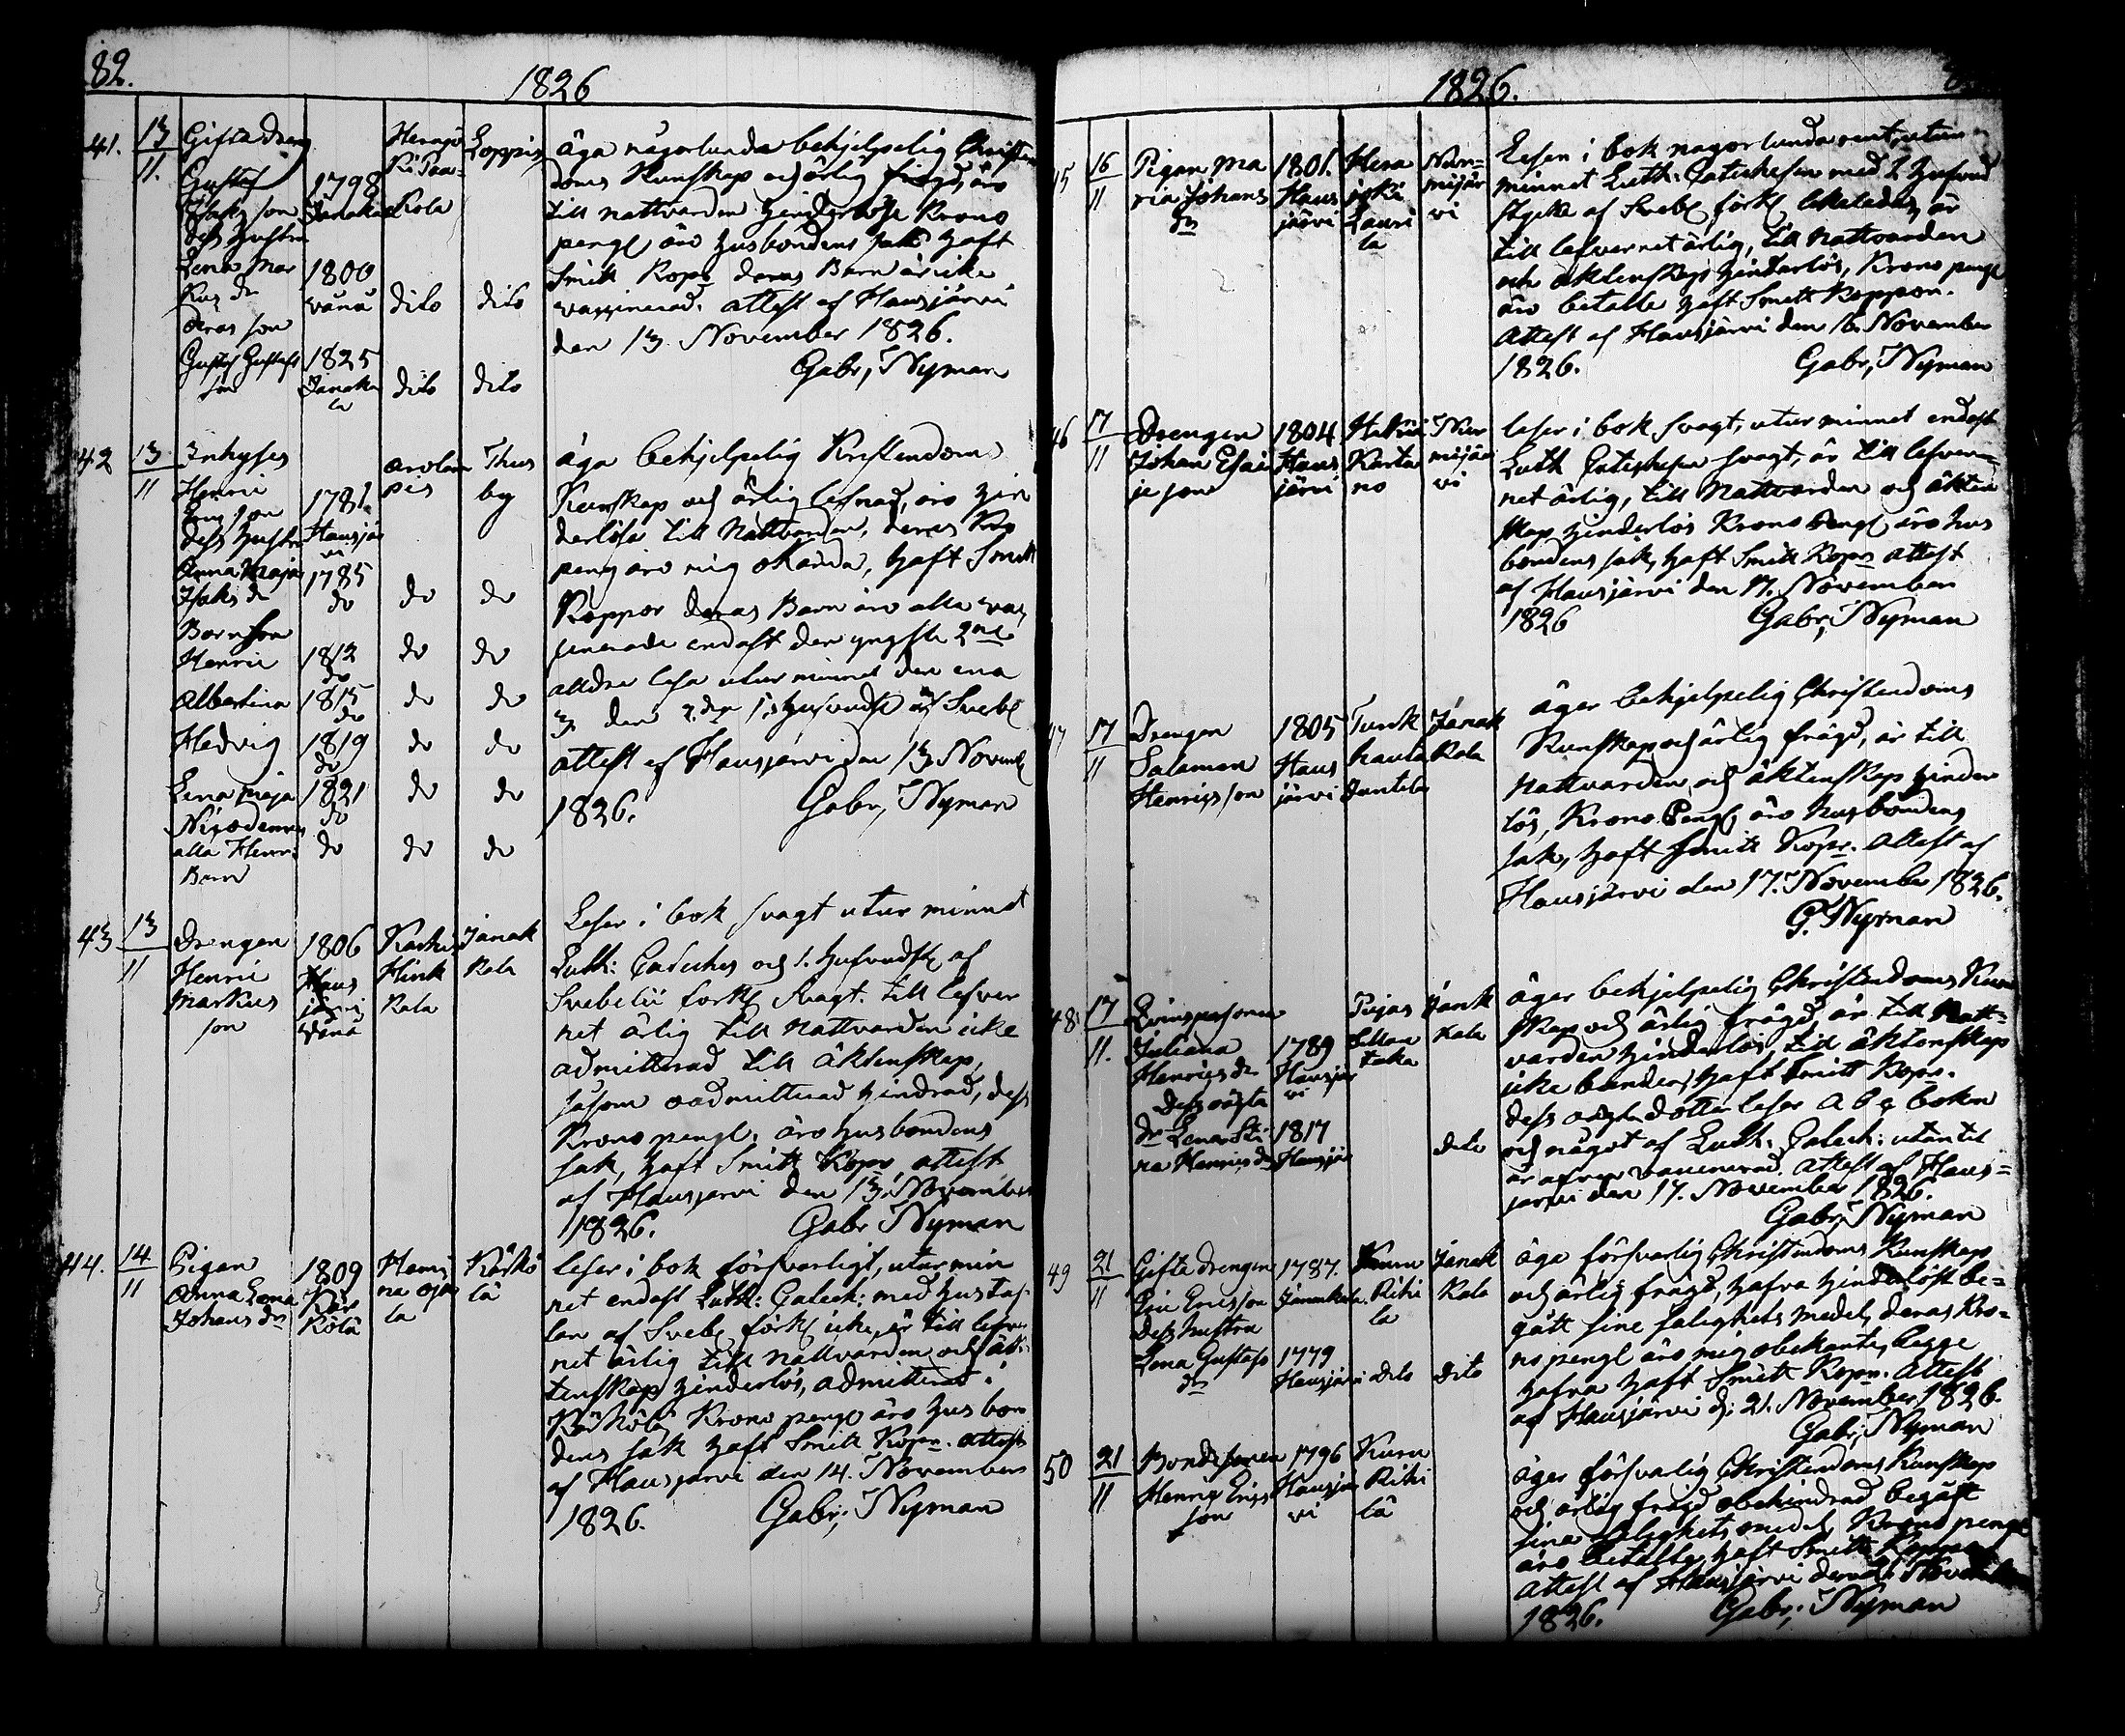 82.
1826
41. 13/11. Gifta Dreng
Gustaf
Isaks son
dess hustru
Lena Mar
kus dr
deras son
Gustaf Gustafs
son
1798
Janakkala
1800
vånå
1825
Janakka
la
Herajo
ki Paa
kola
dito
dito
Loppis
dito
dito
äga någorlunda behjelpelig Christen
doms Kunskap och ärlig frägd, äro
till nattvarden hinderlöse Krono
pengl äro husbondens sak haft
Smitt Kopr deras Barn är icke
vaxinerad. attest af Hausjärvi
den 13 November 1826.
Gabr, Nyman
42 13/11 Inhyses
Henric
son
dess hustru
Anna Maja
Isaks dr
Barn son
Henric
Albertina
Hedvig
Lena Maja
Nicodemus
alla Henrics
Barn
1781
Hausjär
vi
1785
do
1812
do
1815
do
1819
do
1821
do
do
arolam
pis
do
do
do
do
do
do
Thus
by
do
do
do
do
do
do
äga behjelpelig Kristendoms
Kunskap och ärlig lefnad, äro hin
derlösa till Nattvarden, deras Kro
peng äro mig okända, haft Smitt
Koppor deras Barn äro alla vax
sinerade endast den yngste
alldre lesa utur minnet den ena
3 den 2:dra 1:a hufvudst af Svebl
attest af Hausjarvi den 13 Novemb
1826.
Gabr, Nyman
43 13/11 Drengen
Henric
Markus
son
1806
Haus
järvi
vånå
Karhi
Hink
kala
Janak
kala
Leser i bok svagt utur minnet
Luth: Cateches och 1. hufvudst af
Svebelii forkl svagt. till lefver
net ärlig till nattvarden icke
admitterad till äktenskap,
såsom oadmitterad hindrad, dess
Krono pengl. äro husbondens
sak, haft Smitt Kopr, attest
af Hausjarvi den 13 November
1826.
Gabr Nyman
44. 14/11 Pigan
Anna Lena
Johans dr
1809
Kär
kölä
Hami
na oja
la
Kärkö
lä
leser i bok försvarligt, utur min
net endast Luth: Catech: med hustaf
lan af Svebl förkl icke, är till lefver
net ärlig till nattvarden och äk
tenskap hinderlös, admitterad i
Kärkölä, Krono pengl äro husbon
dens sak haft Smitt Kopr. attest
af Hausjarvi den 14. November
1826.
Gabr, Nyman
1826.
45 16/11 Pigan Ma
ria Johans
dr
1801.
Haus
järvi
Hera
joki
Lauri
la
Nur
mijär
vi
Leser i bok nagorlunda rent, utur
minnet Luth: Catechesen med 2 hufvud
stycke af Svebl förkl är
till lefvernet ärlig, till Nattvarden
och äktenskap hinderlös, Krono pengl
äro betalte haft Smitt Koppor.
Attest af Hausjärvi den 16 November
1826.
Gabr, Nyman
46 17/11 Drengen
Johan Esai
je son
1804
Haus
järvi
Karta
no
Nur
mijär
vi
leser i bok svagt, utur minnet endast
Luth Catechesen svagt, är till lefver=
net ärlig, till Nattvarden och äkten
skap hinderlös Krono Pengl äro hus
bondens sak, haft Smitt Kopr attest
af Hausjärvi den 17. November
1826
Gabr, Nyman
47 17/11 Drengen
Salamon
Henrics son
1805
Haus
järvi
Turk
hauta
Janak
kala
äger behjelpelig Christendoms
Kunskap och ärlig frägd, är till
Nattvarden och äktenskap hinder
lös, Krono Pengl äro husbondens
sak, haft Smitt Kopr. attest af
Hausjärvi den 17. November 1826.
G. Nyman
48. 17/11. Qvinspersonen
Juliana
Henrics dr
Dess oägta
dr Lena Sti
na Henrics dr
1789
Hausjär
vi
1817
Hausjär
Jank
kala
dito
äger behjelpelig Christendoms Kun
skap och ärlig frägd, är till Natt=
varden hinderlös, till äktenskap
icke bunden, haft Smitt Kopr.
dess oägta dotter leser A b c boken
och något af Luth: Catech: utantil
är afven vaccinerad. Attest af Haus=
jarvi den 17. November 1826.
Gabr, Nyman
49 21/11 Gifta Drengen
Ericsson
dess hustru
Lena Gustafs
dr
1787.
Janakkala
1779
Hausjärvi
Riki
la
dito
Janak
kala
dito
äga försvarlig Christendoms Kunskap
och ärlig frägd, hafva hinderlöst be=
gått sine salighets medel, deras Kro=
no pengl äro mig obekante, begge
hafva haft Smitt Kopr. Attest
af Hausjärvi d: 21. November 1826.
Gabr, Nyman
50 21/11 Bondesonen
Henric Erics
son
1796
Hausjär
vi
Kuru
Riki
lä
äger försvarlig Christendoms Kunskap
och ärlig frägd obehindrad begått
sine salighets medel, Krono pengl
äro betalte, haft Smitt Koppor
Attest af Hausjärvi den 21 November
1826.
Gabr, Nyman